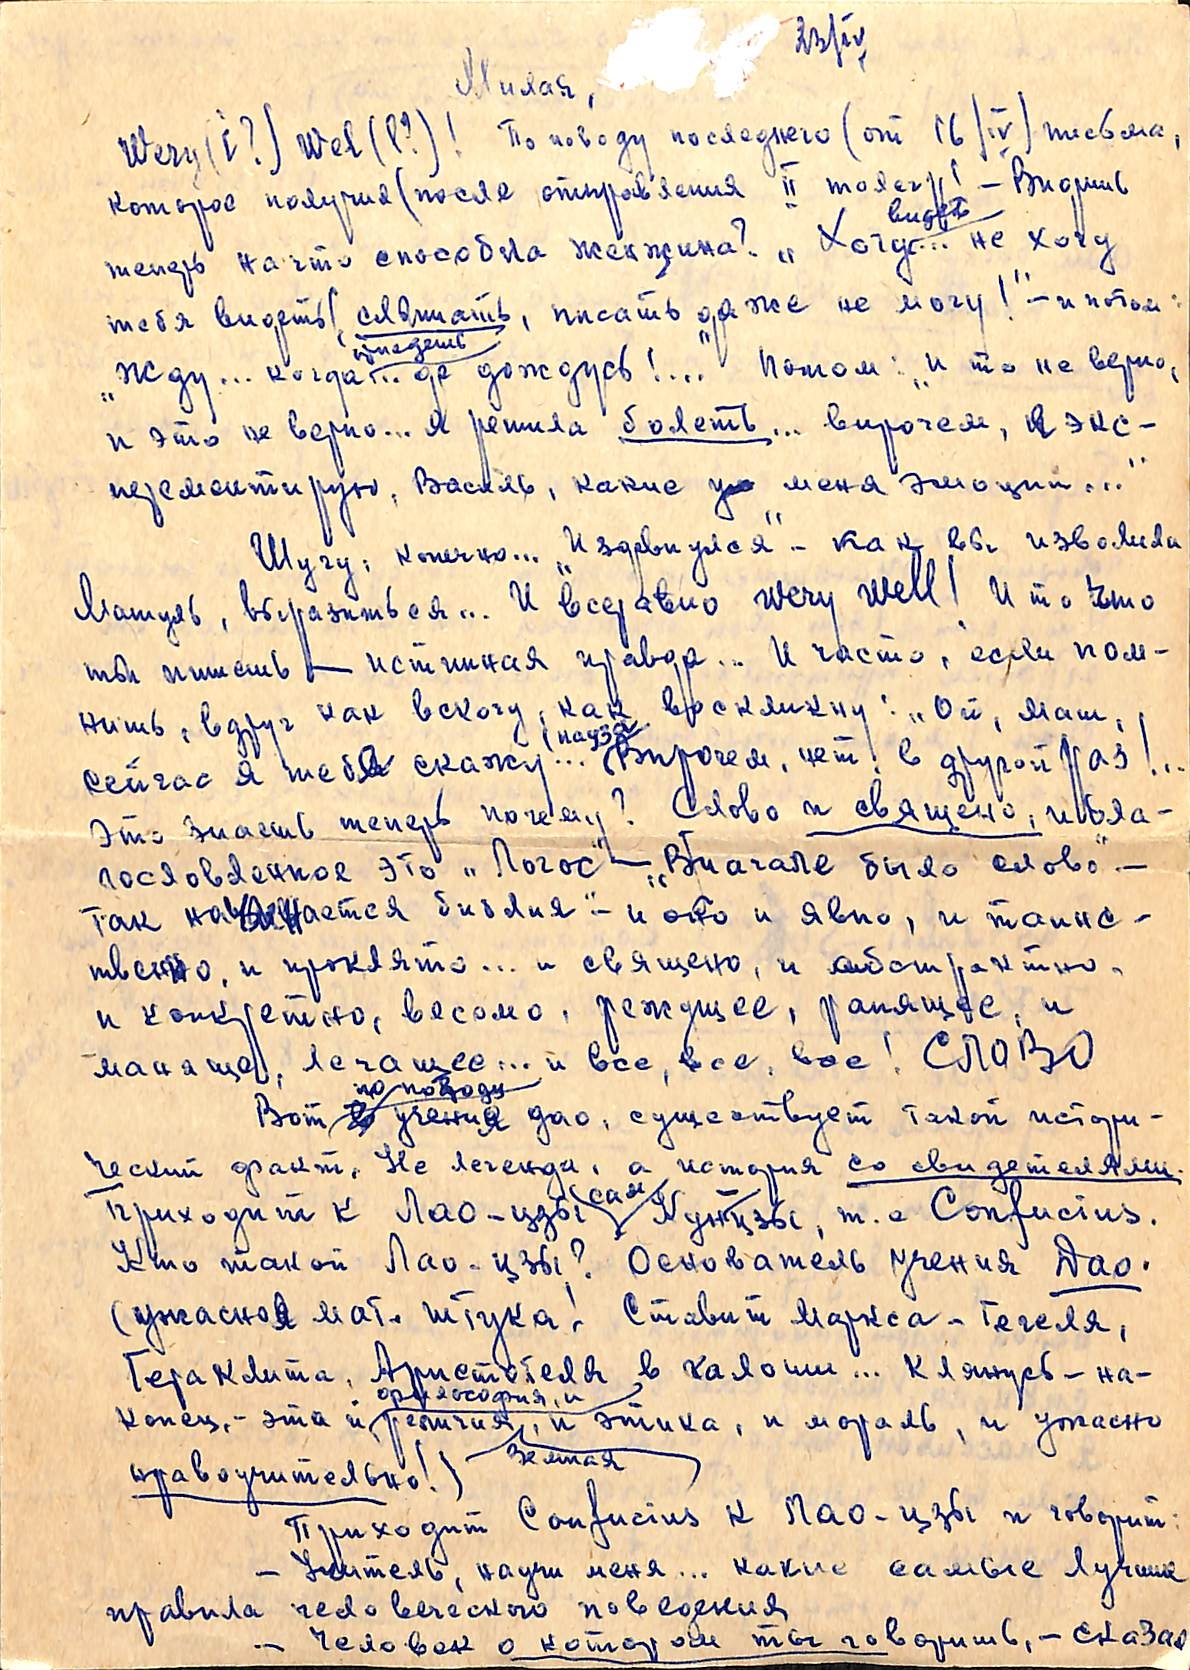 23/IV
Милая,
Wery (i?) Wel (l?)! По поводу последнего (от 16/IV) письма,
которое получил (после отправления II толеги! – Видишь
теперь на что способна женжина? „Хочу видеть... не хочу
тебя видеть, слышать, писать даже не могу!" – и потом:
„Жду... когда приедешь... да дождусь!..." Потом: „И то не верно,
и это не верно... Я решила болеть... впрочем, я экс-
перементирую, Василь, какие у меня эмоции..."
Шучу, конечно... „Издевнулся" – как вы изволили
Машуль, выразиться... И всеравно wery well! И то что
ты пишешь — истинная правда... И часто, если пом-
нишь, вдруг как вскочу, как воскликну: „Ой, Маш,
сейчас я тебя скажу... (пауза) Впрочем, нет! в другой раз!..
Это знаешь теперь почему? Слово и священо, и бла-
гословленное это „Логос" — „Вначале было слово" –
так начинается библия – и оно и явно, и таинс-
твенно, и проклято... и священо, и абстрактно,
и конкретно, весомо, режущее, ранящее, и
манящее, лечащее... и все, все, все! СЛОВО
Вот по поводу учения дао, существует такой истори-
ческий факт. Не легенда, а история со свидетелями.
Приходит к Лао-цзы сам Кунцзы, т.е Confucius.
Кто такой Лао-цзы? Основатель учения Дао.
(ужасная мат. штука! Ставит Маркса – Гегеля,
Гераклита, Аристотеля в калоши... Клянусь – на-
конец, – эта и философия, и религия, и этика, и мораль, и ужасно
земная
нравоучительно!)
Приходит Confucius к Лао-цзы и говорит:
– Учитель, научи меня... какие самые лучшие
правила человеческого поведения
– Человек о котором ты говоришь, – сказал